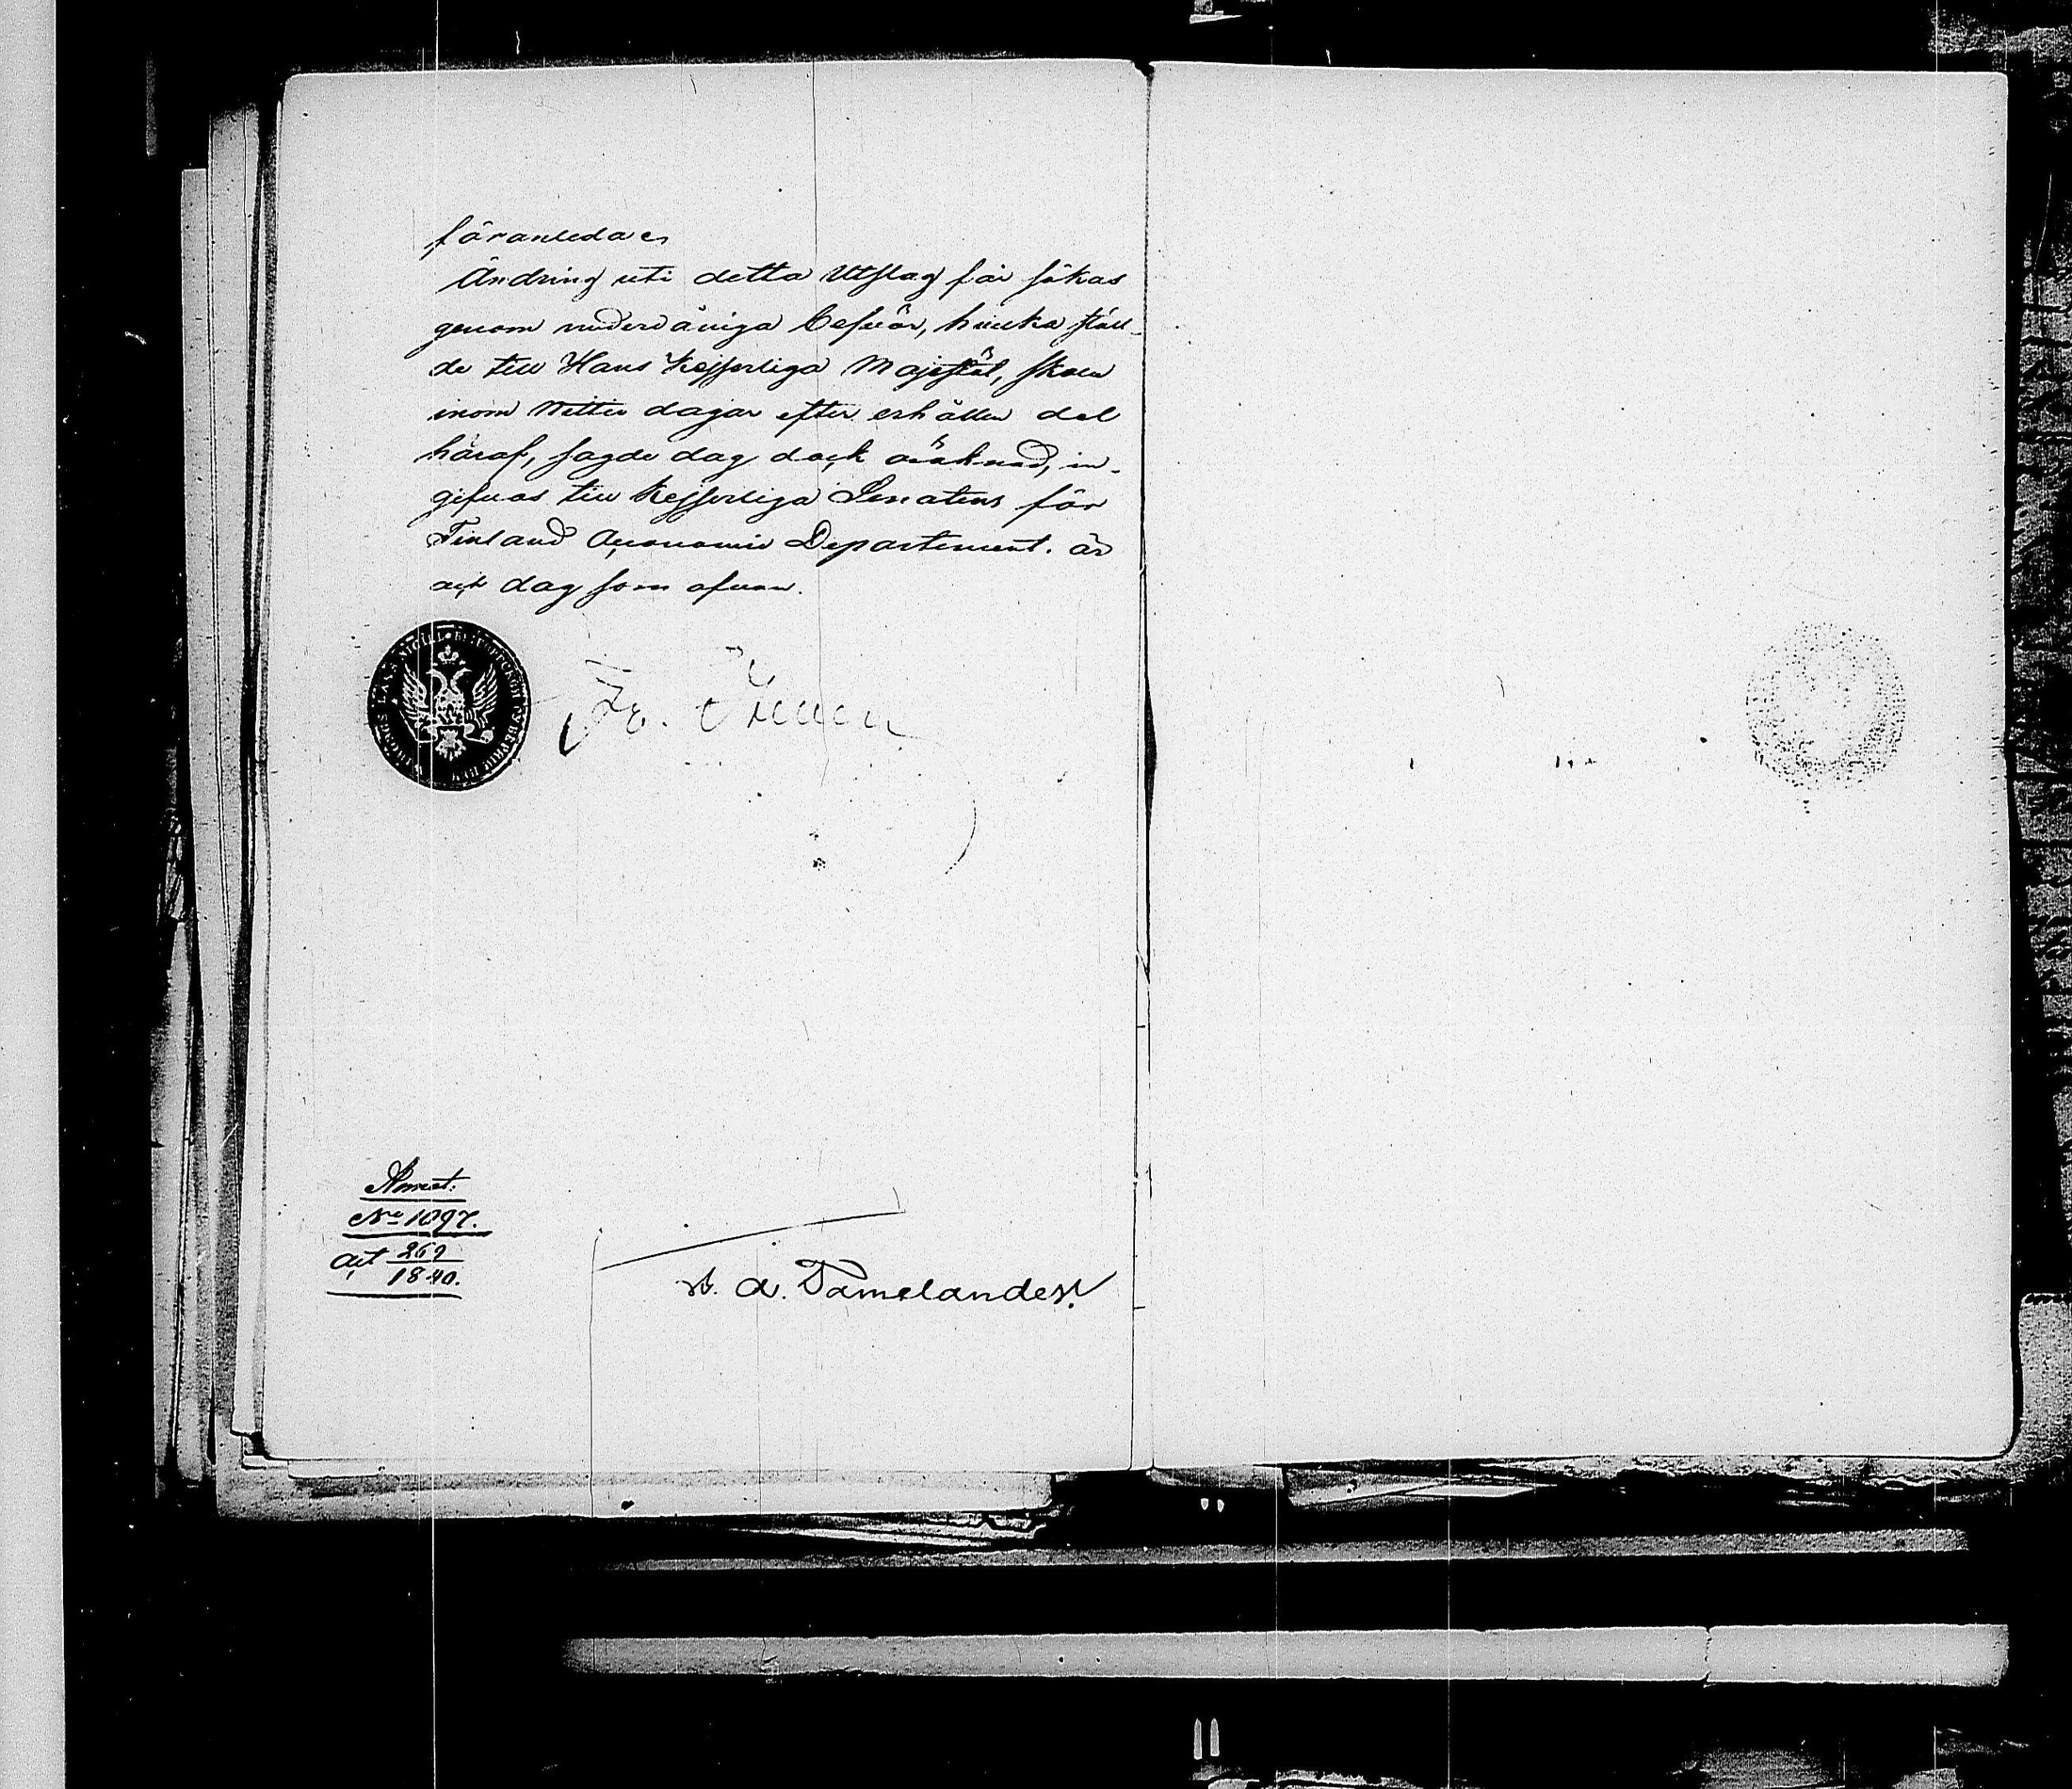 föranledaes
Ändring uti detta Utslag får sökas
genom underdåniga besvär, hvilka stäl-
de till Hans Kejserliga Majestät, skola
inom Nettio dagar efter erhållen del
häraf, sagde dag dock oräknad, in-
gifvas till Kejserliga Senatens för
Finland Oeconomie Departement. år
och dag som ofvan.
Fr. Stewen
No 1097.
Act 269
1840.
A. Tamelander.